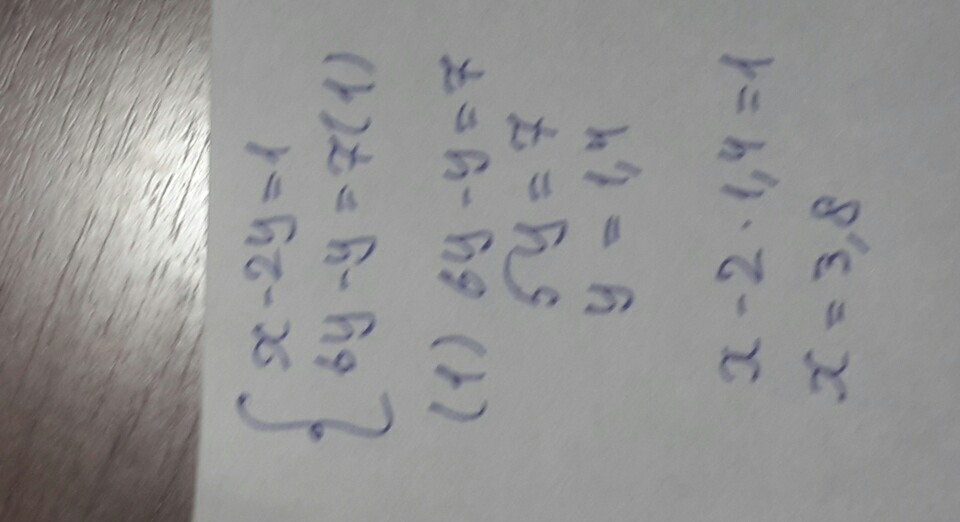 x - 2y = 1
6y - y = 7 (1)
(1) 6y - y = 7
5y = 7
y = 1,4
x - 2 · 1,4 = 1
x = 3,8